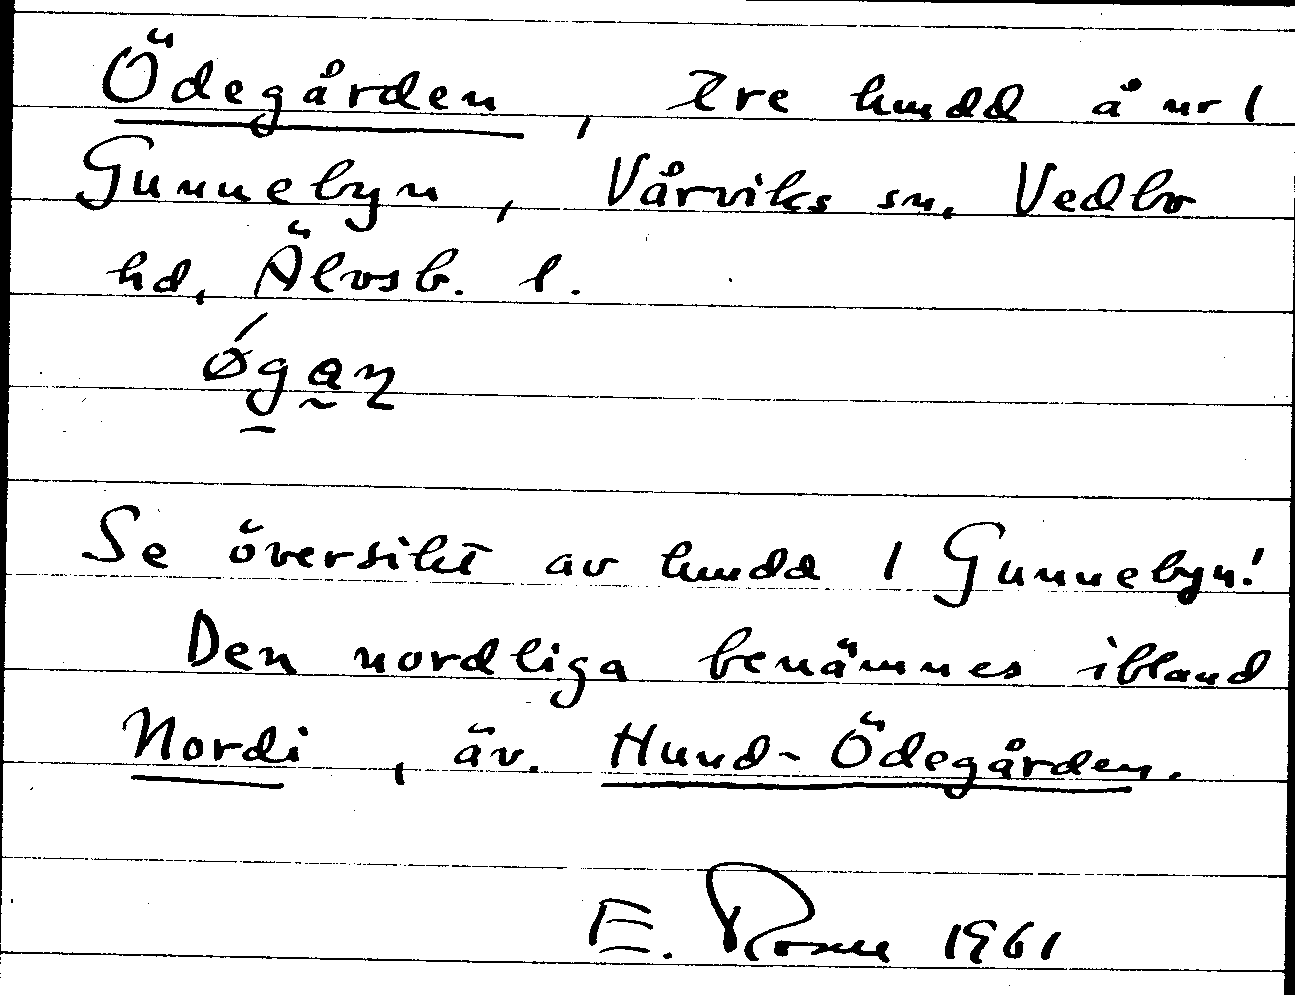 Ödegården, tre hmdd å nr 1
Gunnebyn, Vårviks sn. Vedbo
hd, Älvsb. l.
ǿgan
Se översikt av hmdd 1 Gunnebyn!
Den nordliga benämnes ibland
Nordi, äv. Hund-Ödegården.
E. 1961